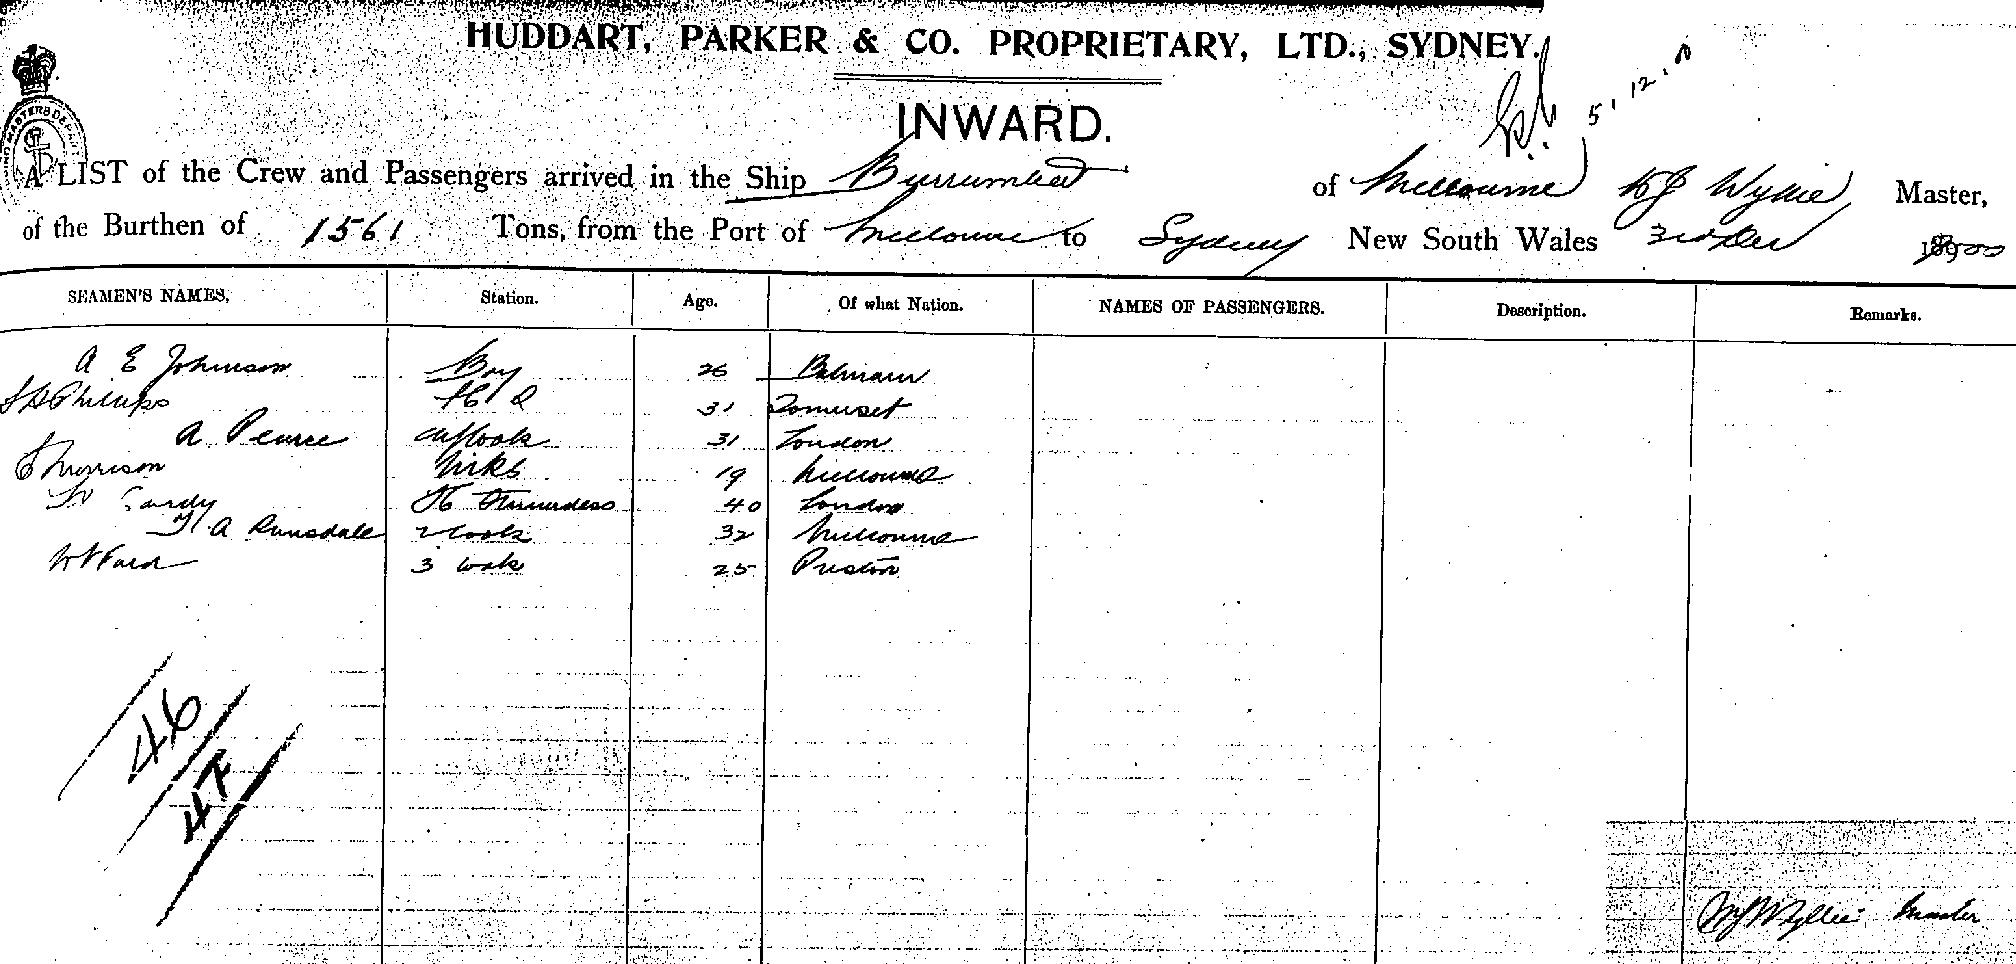 HUDDART, PARKER & CO. PROPRIETARY, LTD., SYDNEY.
5.12.0
INWARD.
A LIST of the Crew and Passengers arrived in the Ship Burrumbeet of Melbourne WJ Wyllie Master,
of the Burthen of 1561 Tons, from the Port of Melbourne to Sydney New South Wales 3rd Dec 1900
SEAMEN'S NAMES. Station. Age. Of what Nation. NAMES OF PASSENGERS. Description. Remarks.
A E Johnson Boy 26 Balmain
Phillips 31 Somerset
A Pearce 31 London
Morrison 19 Melbourne
Stewardess 40 London
A Ransdale 2 Cook 32 Melbourne
Ford 3 Cook 25 Preston
46
47
WJ Wyllie Master